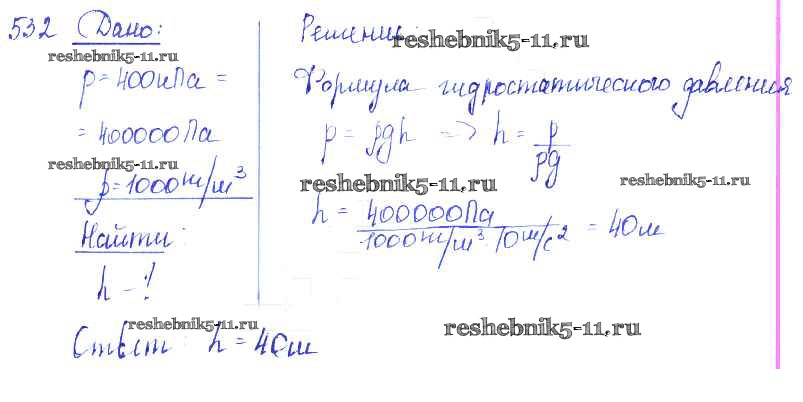 532 Дано:
reshebnik5-11.ru
p = 400кПа =
= 400000Па
reshebnik5-11.ru
ρ = 1000кг/м³
Найти:
h - ?
Решение:
reshebnik5-11.ru
Формула гидростатического давления
p = ρgh => h = p/ρg
reshebnik5-11.ru
reshebnik5-11.ru
h = 400000Па / 1000кг/м³ · 10м/с² = 40м
reshebnik5-11.ru
reshebnik5-11.ru
Ответ: h = 40м